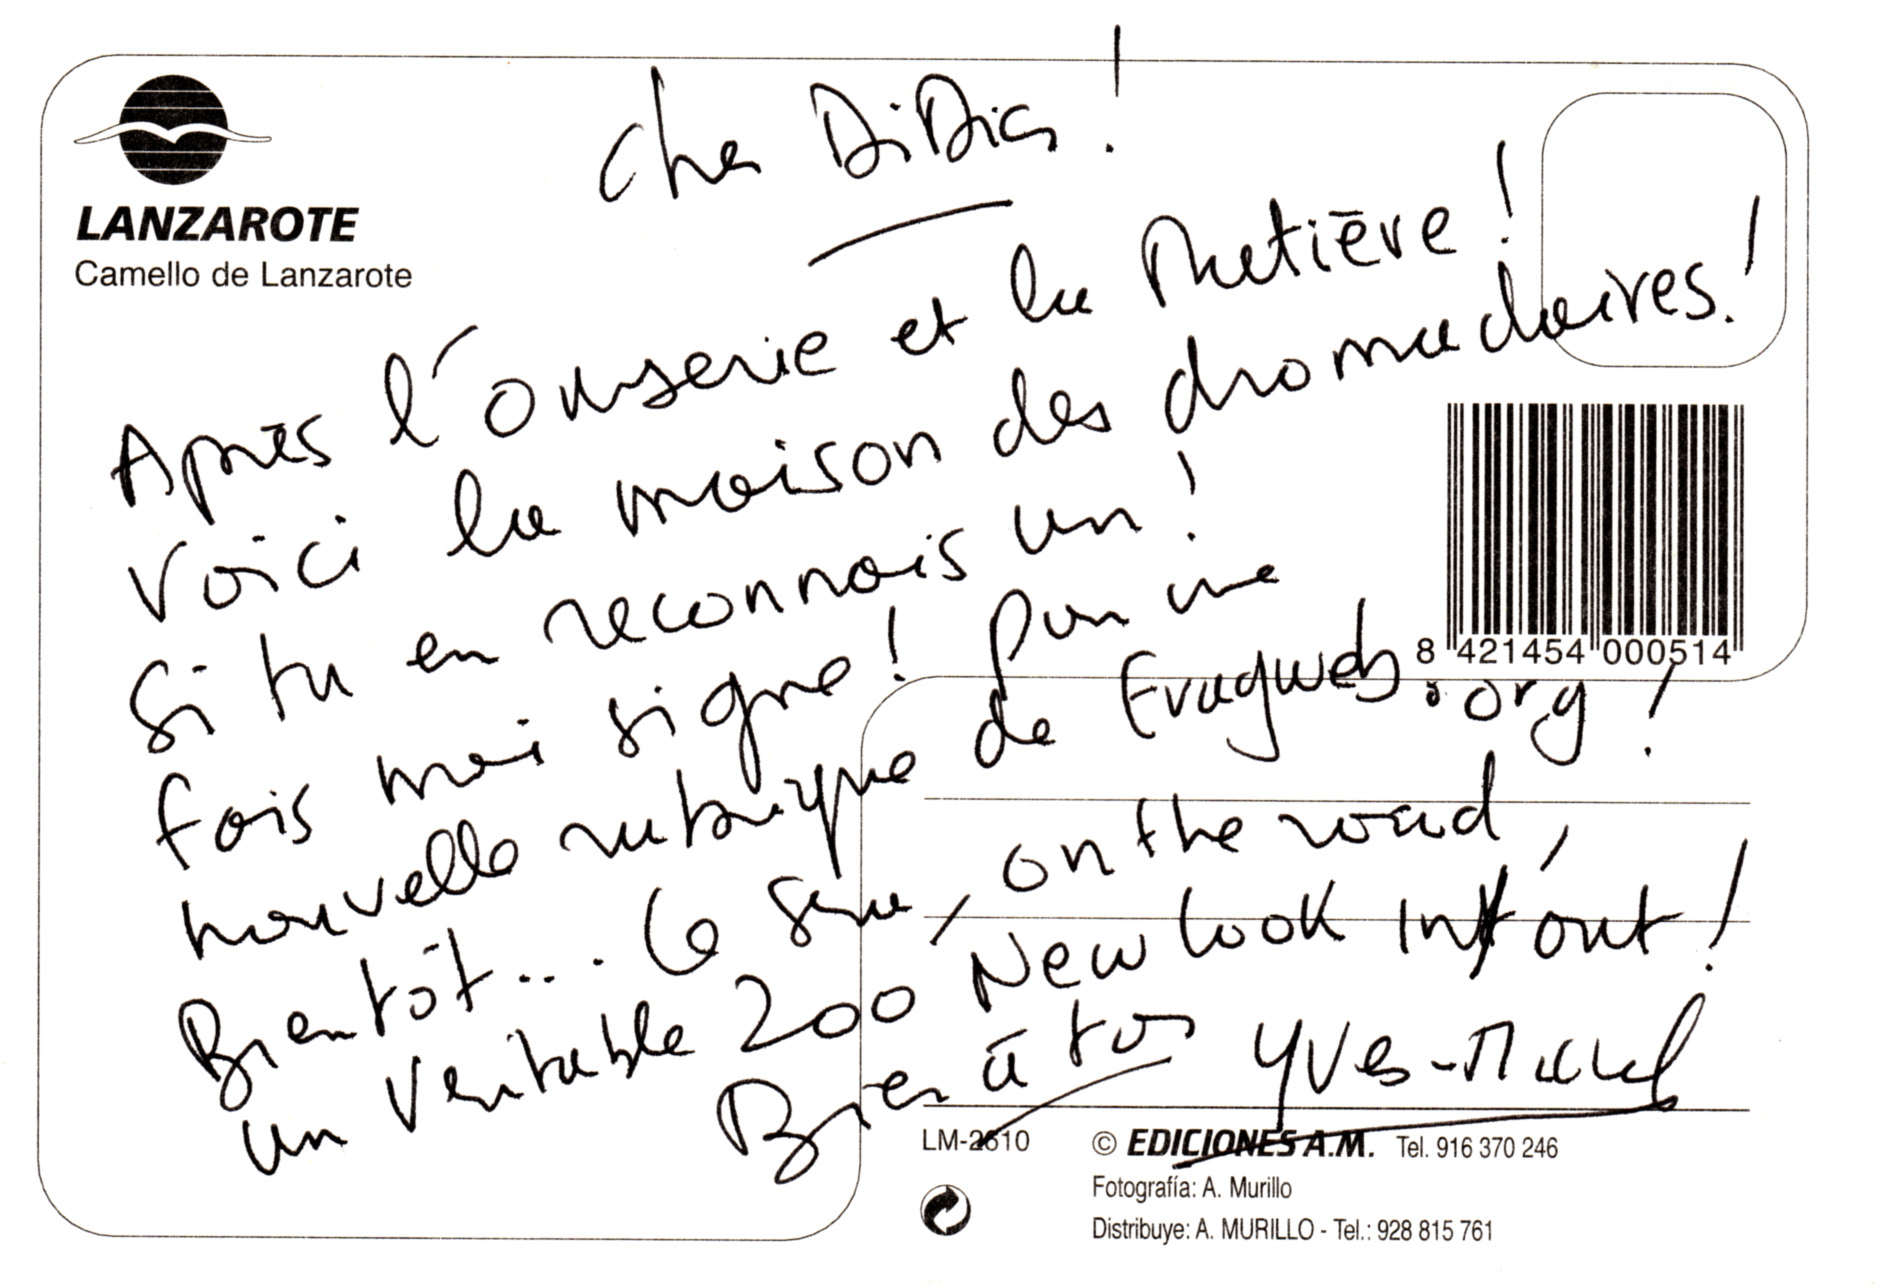 LANZAROTE
Camello de Lanzarote
Cher DiDier !
Après l'Ourserie et la Ratière !
Voici la maison des dromadaires !
Si tu en reconnais un !
fais moi signe ! Pour une
nouvelle rubrique de Evagweb.org !
Bientôt... Ce sera, on the road,
un véritable 200 New look in/out !
Bien à toi Yves-Michel
8 421454 000514
LM-2610
© EDICIONES A.M. Tel. 916 370 246
Fotografía: A. Murillo
Distribuye: A. MURILLO - Tel.: 928 815 761